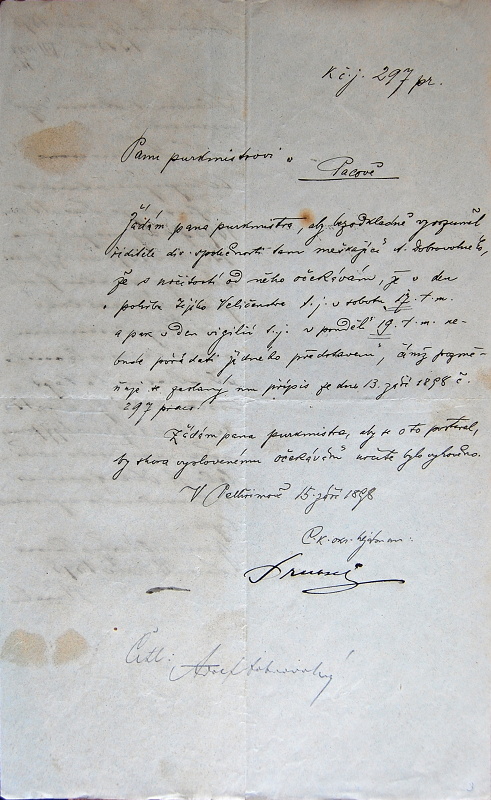 K č.j. 297 pr.
Panu purkmistrovi v Pacově
Žádám pana purkmistra, aby bezodkladně vyrozuměl
ředitele div. společnosti tam meškající A. Dobrovolného,
že s určitostí od něho očekávám, že v den
pohřbu Jejího Veličenstva t.j. v sobotu 17. t.m.
a pak v den vigilií t.j. v pondělí 19. t.m. ne-
bude pořádati žádného představení, čímž pozmě-
ňuje se zaslaný mu přípis ze dne 13. září 1898 č.
297 praes.
Žádám pana purkmistra, aby se o to postaral,
by shora vyslovenému očekávání určitě bylo vyhověno.
V Pelhřimově 15. září 1898
C.k. okr. hejtman:
Četl: